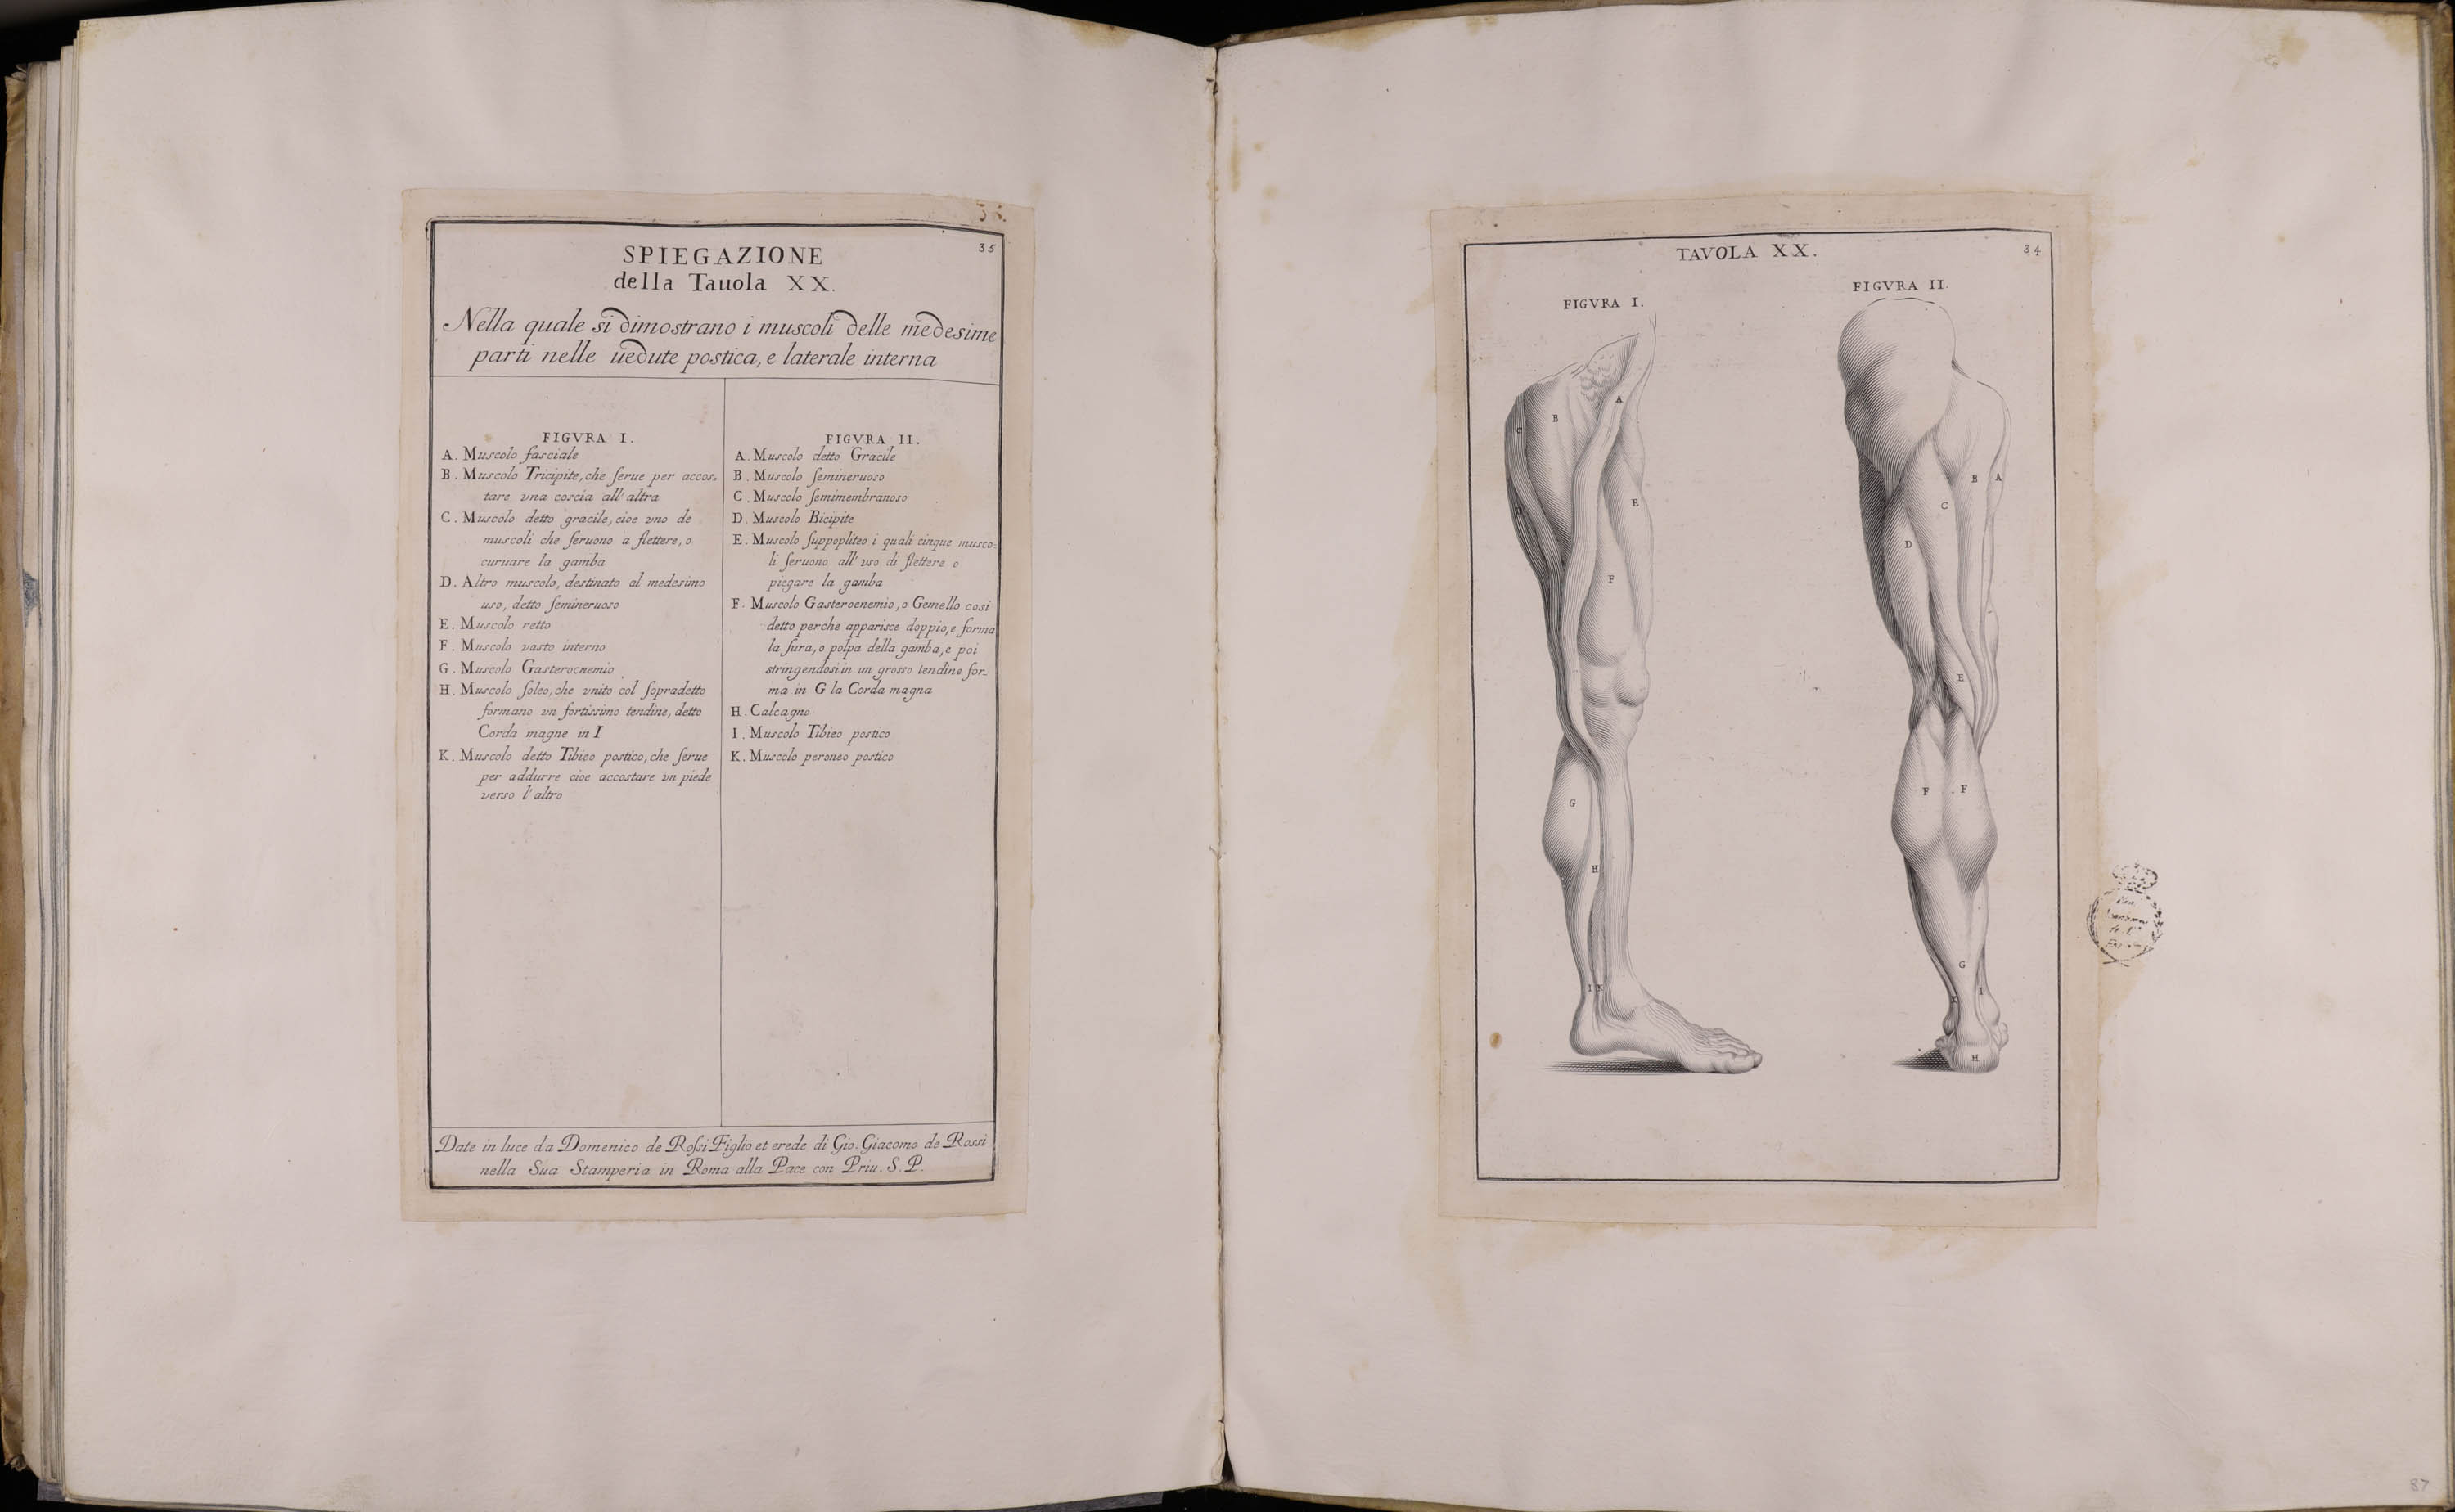 35
SPIEGAZIONE
della Tauola XX.
Nella quale si dimostrano i muscoli delle medesime
parti nelle uedute postica, e laterale interna
FIGVRA I.
A. Muscolo fasciale
B. Muscolo Tricipite, che ſerue per accos-
tare vna coscia all' altra
C. Muscolo detto gracile, cioe vno de
muscoli che ſeruono a flettere, o
curuare la gamba
D. Altro muscolo, destinato al medesimo
uso, detto ſemineruoso
E. Muscolo retto
F. Muscolo vasto interno
G. Muscolo Gasterocnemio
H. Muscolo ſoleo, che vnito col ſopradetto
formano vn fortissimo tendine, detto
Corda magne in I
K. Muscolo detto Tibieo postico, che ſerue
per addurre cioe accostare vn piede
verso l' altro
FIGVRA II.
A. Muscolo detto Gracile
B. Muscolo ſemineruoso
C. Muscolo ſemimembranoso
D. Muscolo Bicipite
E. Muscolo ſuppopliteo i quali cinque musco-
li ſeruono all' vso di flettere o
piegare la gamba
F. Muscolo Gasteroenemio, o Gemello cosi
detto perche apparisce doppio, e forma
la ſura, o polpa della gamba, e poi
stringendosi in un grosso tendine for-
ma in G la Corda magna
H. Calcagno
I. Muscolo Tibieo postico
K. Muscolo peroneo postico
Date in luce da Domenico de Roſsi Figlio et erede di Gio. Giacomo de Rossi
nella Sua Stamperia in Roma alla Pace con Priu. S. P.
TAVOLA XX.
34
FIGVRA I.
FIGVRA II.
A
B
C
D
E
F
G
H
I K
A
B
C
D
E
F F
G
I
K
H
87